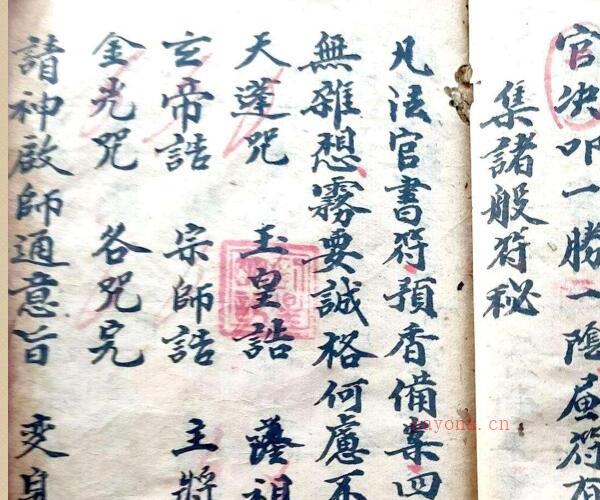 官决叩一勝一陰屆符
集諸般符秘
凡法官書符預香備案四
無雜想霧要誠格何慮不
天蓬咒 玉皇誥 祖
玄帝誥 宗師誥 主將
金光咒 各咒完
請神啟師通意旨 变身